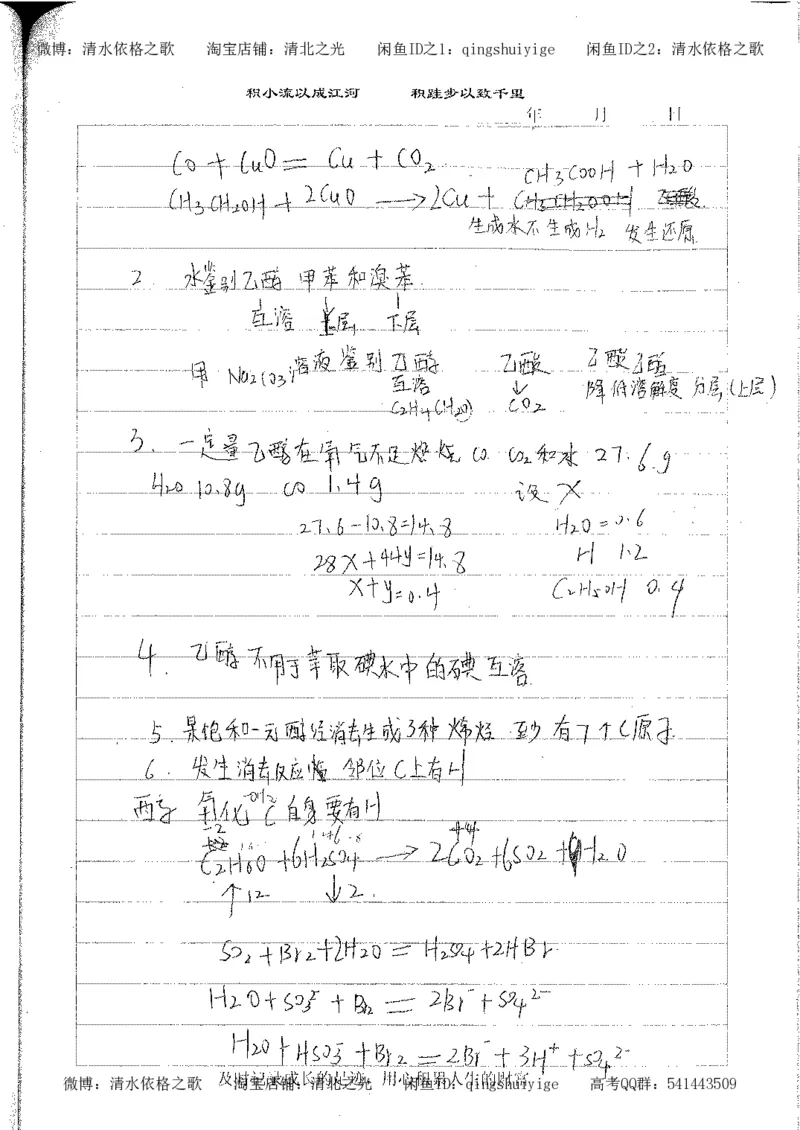 微博：清水依格之歌 淘宝店铺：清北之光 闲鱼ID之1：qingshuiyige 闲鱼ID之2：清水依格之歌
积小流以成江河 积跬步以致千里
年 月 日
CO + CuO = Cu + CO2
CH3COOH + H2O
CH3CH2OH + 2CuO → 2Cu +
生成水不生成H2 发生还原
2 水鉴别乙醇 甲苯和溴苯
互溶 上层 下层
用 Na2CO3溶液鉴别 乙醇 乙酸 乙酸乙酯
互溶 ↓ 降低溶解度 分层(上层)
C2H4(H2O) CO2
3. 一定量乙醇在氧气不足燃烧 CO CO2和水 27.6g
H2O 10.8g CO 1.4g 设 X
27.6-10.8=14.8 H2O=0.6
28X+44y=14.8 H 1.2
X+y=0.4 C2H5OH 0.4
4. 乙醇不用于萃取碘水中的碘 互溶
5. 某饱和一元醇经消去生成3种烯烃 至少有7个C原子
6. 发生消去反应 邻位C上有H
两字 氧化 C自身要有H
C2H6O + 6H2SO4 → 2CO2 + 6SO2 + 9H2O
↑12 ↓2.
SO2 + Br2 + 2H2O = H2SO4 + 2HBr
H2O + SO3²⁻ + Br2 = 2Br⁻ + SO4²⁻
H2O + HSO3⁻ + Br2 = 2Br⁻ + 3H⁺ + SO4²⁻
及时记录成长的足迹 用心积累人生的财富
微博：清水依格之歌 淘宝店铺：清北之光 闲鱼ID：qingshuiyige 高考QQ群：541443509